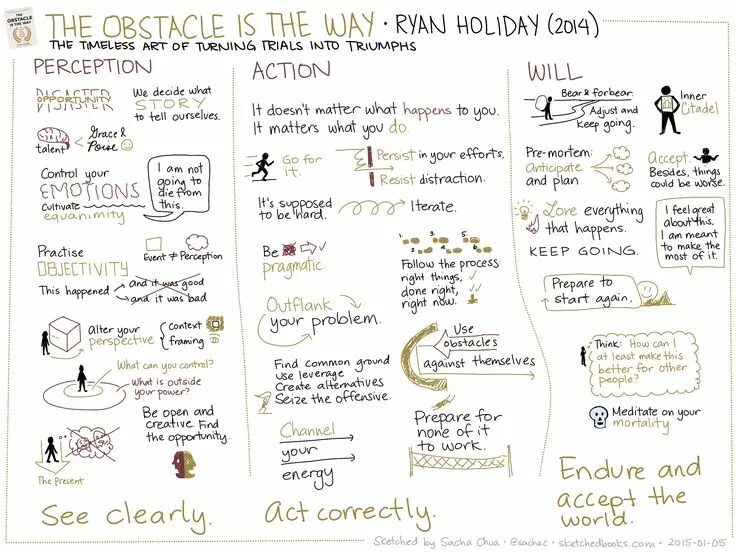 THE OBSTACLE IS THE WAY
THE OBSTACLE IS THE WAY · RYAN HOLIDAY (2014)
THE TIMELESS ART OF TURNING TRIALS INTO TRIUMPHS
PERCEPTION
DISASTER
OPPORTUNITY
We decide what
STORY
to tell ourselves.
talent
Grace &
Poise
Control your
EMOTIONS
Cultivate
equanimity
I am not
going to
die from
this.
Practise
OBJECTIVITY
Event ≠ Perception
This happened
and it was good
and it was bad
Alter your
perspective
context
framing
What can you control?
What is outside
your power?
Be open and
creative. Find
the opportunity.
The Present
See clearly.
ACTION
It doesn't matter what happens to you.
It matters what you do.
Go for
it.
Persist in your efforts.
Resist distraction.
It's supposed
to be hard.
Iterate.
Be
pragmatic.
1.
2.
3.
4.
5.
6.
Follow the process
right things,
done right,
right now.
Outflank
your problem.
Use
obstacles
against themselves
Find common ground
Use leverage
Create alternatives
Seize the offensive.
Channel
your
energy
Prepare for
none of it
to work.
Act correctly.
WILL
Bear & forbear.
Adjust and
keep going.
Inner
Citadel
Pre-mortem:
Anticipate
and plan
Accept.
Besides, things
could be worse.
Love everything
that happens.
KEEP GOING.
I feel great
about this.
I am meant
to make the
most of it.
Prepare to
start again.
Think: How can I
at least make this
better for other
people?
Meditate on your
mortality
Endure and
accept the
world.
Sketched by Sacha Chua · @sachac · sketchedbooks.com · 2015-01-05